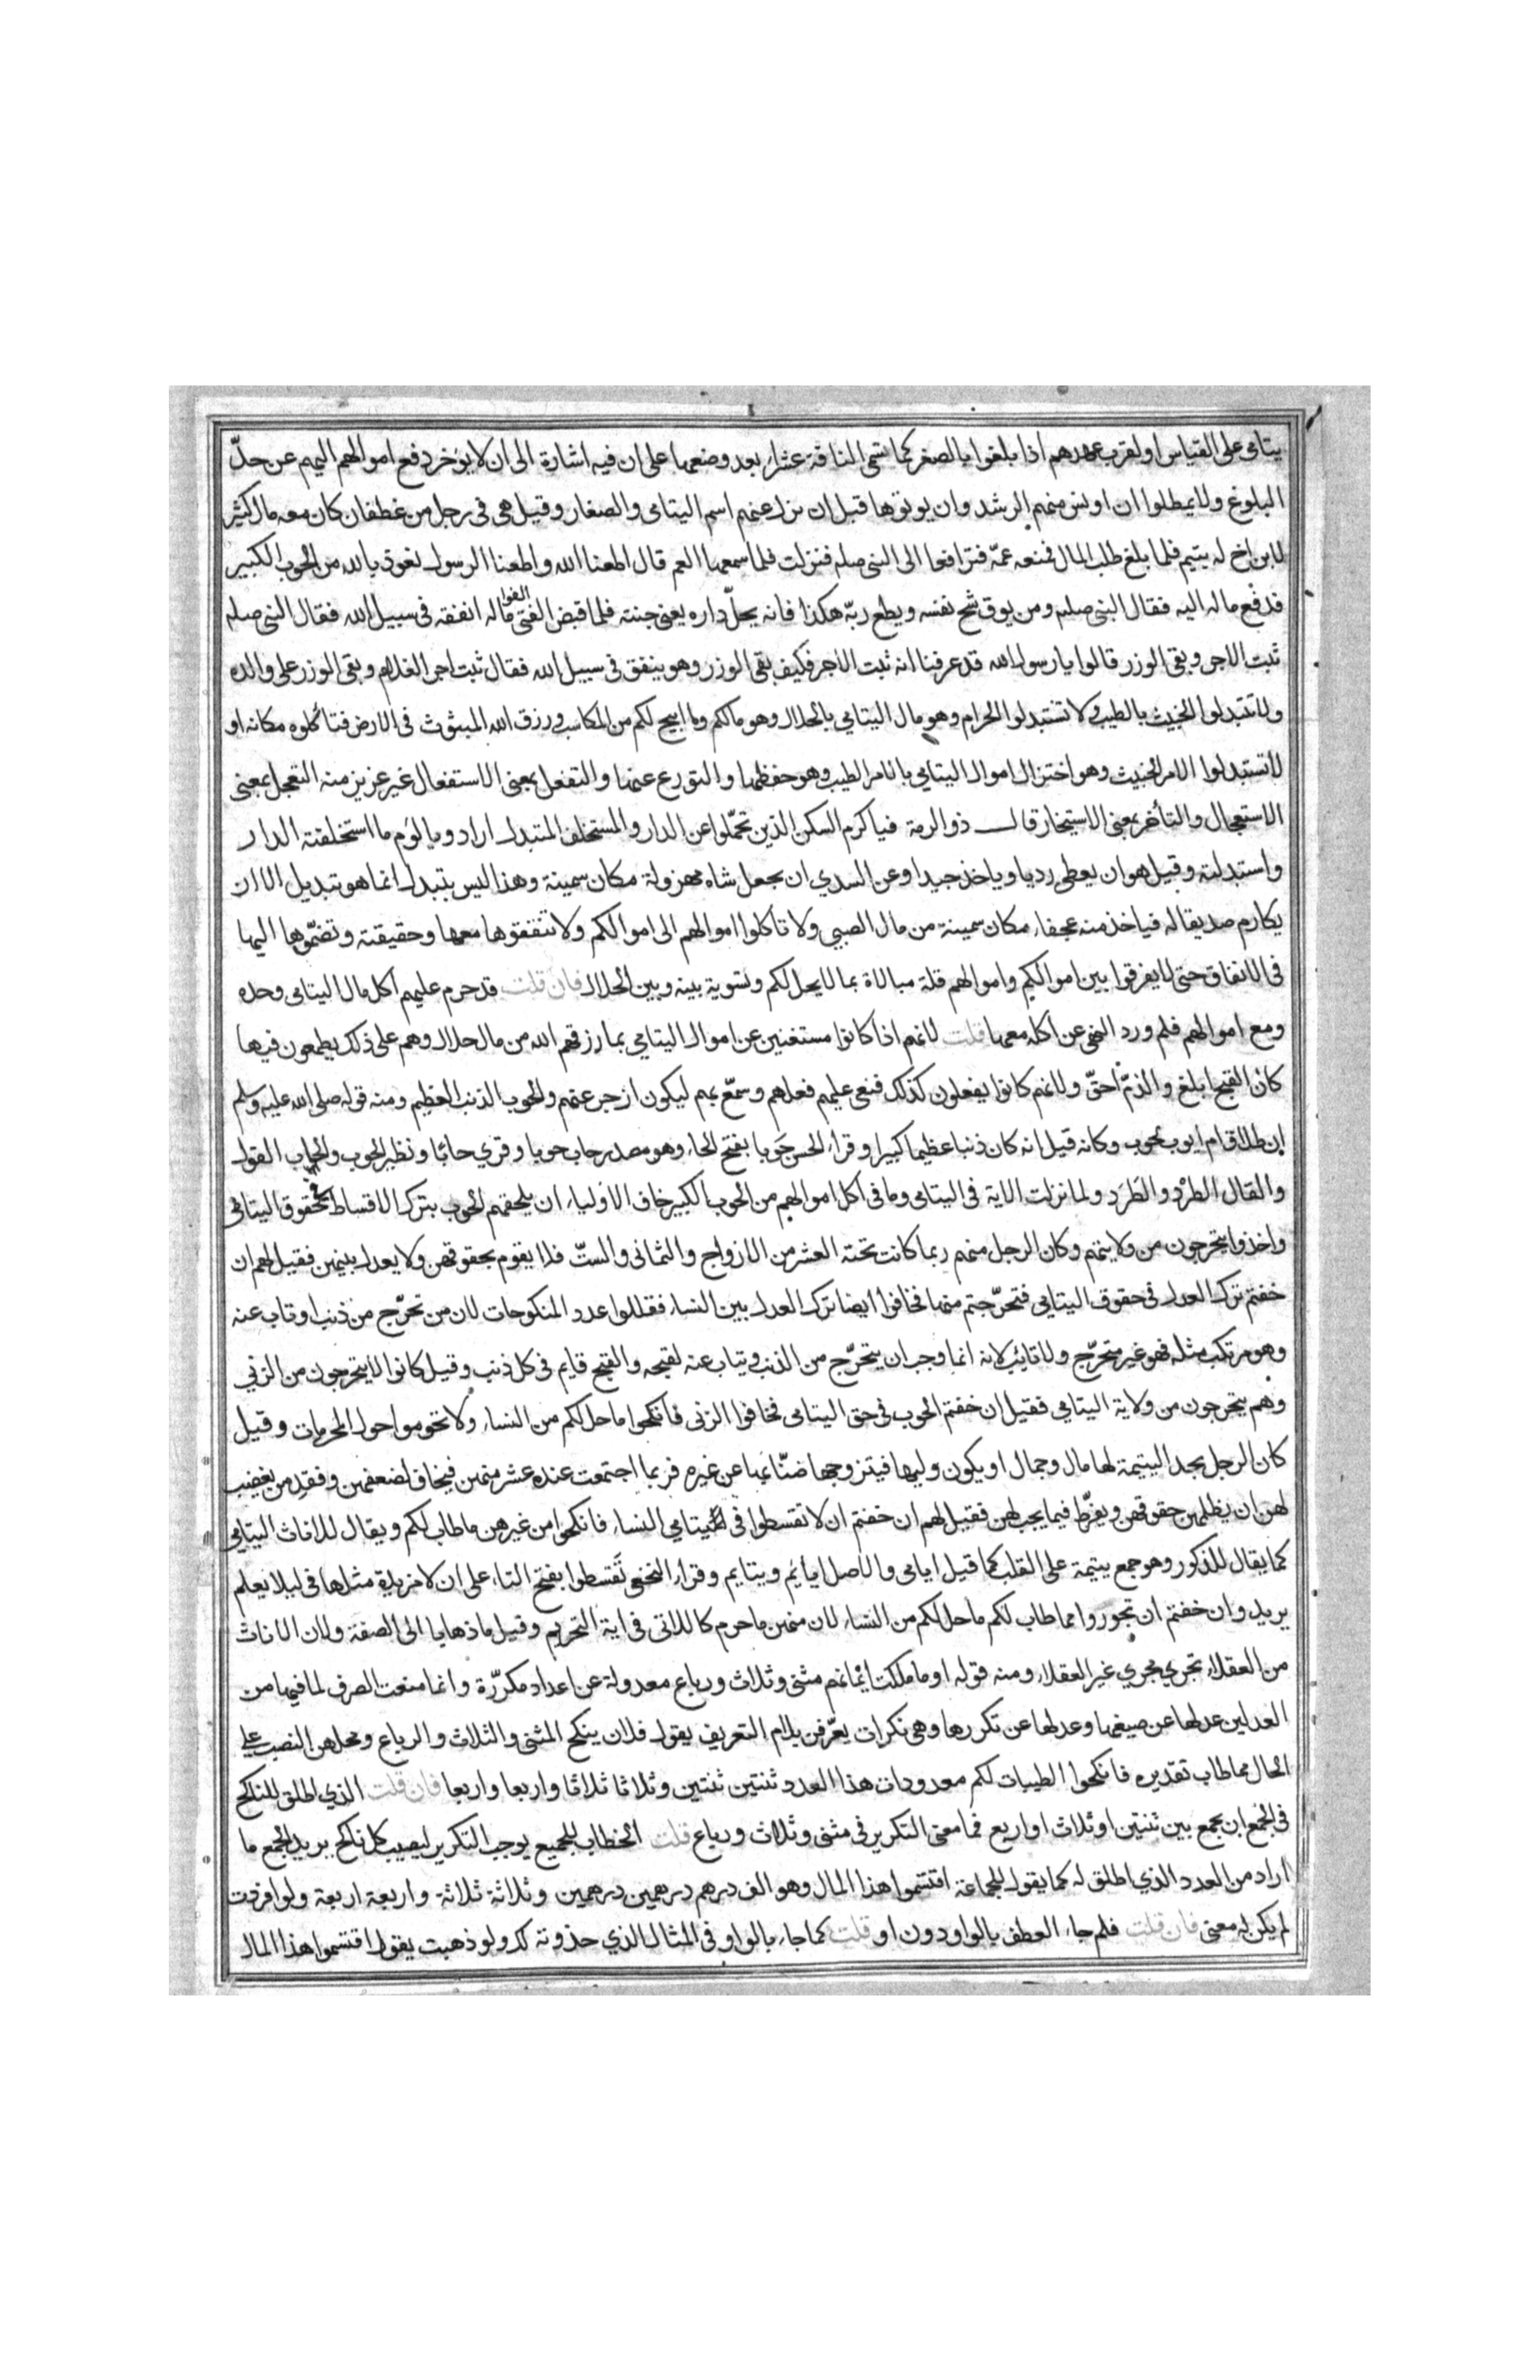 يتامى على القياس او لقرب عهدهم اذا بلغوا بالصغر كما تسمى الناقة عشراء بعد وضعها على ان فيه اشارة الى ان لا يؤخر دفع اموالهم اليهم عن حدّ
البلوغ ولا يمطلوا ان اونس منهم الرشد وان يوتوها قبل ان يزل عنهم اسم اليتامى والصغار وقيل هى فى رجل من غطفان كان معه مال كثير
لابن اخ له يتيم فلما بلغ طلب المال فمنعه عمّه فترافعا الى النبى صلم فنزلت فلما سمعها العم قال اطعنا الله واطعنا الرسول نعوذ بالله من الحوب الكبير
فدفع ماله اليه فقال النبى صلم ومن يوق شح نفسه ويطع ربّه هكذا فانه يحلّ داره يعنى جنته فلما قبض الفتى ماله انفقه فى سبيل الله فقال النبى صلم
ثبت الاجر وبقى الوزر قالوا يا رسول الله قد عرفنا انه ثبت الاجر فكيف بقى الوزر وهو ينفق فى سبيل الله فقال ثبت اجر الغلام وبقى الوزر على والده
ولا تتبدلوا الخبيث بالطيب ولا تستبدلوا الحرام وهو مال اليتامي بالحلال وهو مالكم وما ابيح لكم من المكاسب ورزق الله المبثوث فى الارض فتاكلوه مكانه او
لا تستبدلوا الامر الخبيث وهو اختزال اموال اليتامي بالامر الطيب وهو حفظها والتورع عنها والتفعل بمعنى الاستفعال غير عزيز منه التعجل بمعنى
الاستعجال والتأخر بمعنى الاستيخار قال ذو الرمة فيا كرم السكن الذين تحمّلوا عن الدار والمستخلف المتبدل اراد ويا لؤم ما استخلفته الدار
واستبدلته وقيل هو ان يعطى رديا وياخذ جيدا وعن السدي ان يجعل شاه مهزولة مكان سمينة وهذا ليس بتبدل انما هو تبديل الا ان
يكارم صديقا له فياخذ منه عجفاء مكان سمينة من مال الصبي ولا تاكلوا اموالهم الى اموالكم ولا تنفقوها معها وحقيقته وتضمّوها اليها
فى الانفاق حتى لا يفرقوا بين اموالكم واموالهم قلة مبالاة بما لا يحل لكم وتسوية بينه وبين الحلال فان قلت قد حرم عليهم اكل مال اليتامى وحده
ومع اموالهم فلم ورد النهى عن اكله معها قلت لانهم اذا كانوا مستغنين عن اموال اليتامي بما رزقهم الله من مال حلال وهم على ذلك يطمعون فيها
كان القبح ابلغ والذمّ احقّ ولانهم كانوا يفعلون كذلك فنعى عليهم فعلهم وسمّع بهم ليكون ازجر عنهم والحوب الذنب العظيم ومنه قوله صلى الله عليه وسلم
ان طلاق ام ايوب لحوب وكانه قيل انه كان ذنبا عظيما كبيرا وقراء الحسن حَوبا بفتح الحاء وهو مصدر حاب حوبا وقري حابًا ونظير الحوب والحاب القول
والقال الطرْد والطَرَد ولما نزلت الاية فى اليتامى وما فى اكل اموالهم من الحوب الكبير خاف الاولياء ان يلحقهم الحوب بترك الاقساط فى حقوق اليتامى
واخذوا يتحرجون من ولايتهم وكان الرجل منهم ربما كانت تحته العشر من الازواج والثمانى والستّ فلا يقوم بحقوقهن ولا يعدل بينهن فقيل لهم ان
خفتم ترك العدل فى حقوق اليتامي فتحرّجتم منها فخافوا ايضا ترك العدل بين النساء فقللوا عدد المنكوحات لان من تحرّج من ذنب او تاب عنه
وهو مرتكب مثله فهو غير متحرّج ولا تايب لانه انما وجب ان يتحرّج من الذنب ويتاب عنه لقبحه والقبح قايم فى كل ذنب وقيل كانوا لا يتحرجون من الزنى
وهم يتحرجون من ولاية اليتامي فقيل ان خفتم الحوب فى حق اليتامى فخافوا الزنى فانكحوا ما حل لكم من النساء ولا تحوموا حول المحرمات وقيل
كان الرجل يجد اليتيمة لها مال وجمال او يكون وليها فيتزوجها ضنّا بها عن غيره فربما اجتمعت عنده عشر منهن فيخاف لضعفهن وفقد من يغضب
لهن ان يظلمهن حقوقهن ويفرّط فيما يجب لهن فقيل لهم ان خفتم ان لا تقسطوا فى يتامي النساء فانكحوا من غيرهن ما طاب لكم ويقال للاناث اليتامي
كما يقال للذكور وهو جمع يتيمة على القلب كما قيل ايامى والاصل ايائم ويتايم وقراء النخعى تَقسطوا بفتح التاء على ان لا مزيدة مثلها فى ليلا يعلم
يريد وان خفتم ان تجوروا مما طاب لكم ما حل لكم من النساء لان منهن ما حرم كاللاتى فى اية التحريم وقيل ما ذهابا الى الصفة ولان الاناث
من العقلاء تجري مجري غير العقلاء ومنه قوله او ما ملكت ايمانهم مثنى وثلاث ورباع معدولة عن اعداد مكرّرة وانما منعت الصرف لما فيها من
العدلين عدلها عن صيغها وعدلها عن تكررها وهى نكرات يعرّفن بلام التعريف يقول فلان ينكح المثنى والثلاث والرباع ومحلهن النصب على
الحال مما طاب تقديره فانكحوا الطيبات لكم معدودات هذا العدد ثنتين ثنتين وثلاثا ثلاثا واربعا واربعا فان قلت الذي اطلق للناكح
فى الجمع ان يجمع بين ثنتين او ثلاث او اربع فما معنى التكرير فى مثنى وثلاث ورباع قلت الخطاب للجميع يوجب التكرير ليصيب كل ناكح يريد الجمع ما
اراد من العدد الذي اطلق له كما يقول للجماعة اقتسموا هذا المال وهو الف درهم درهمين درهمين وثلاثة ثلاثة واربعة اربعة ولو افردت
لم يكن له معنى فان قلت فلم جاء العطف بالواو دون او قلت كما جاء بالواو فى المثال الذي حذوته لك ولو ذهبت يقول اقتسموا هذا المال